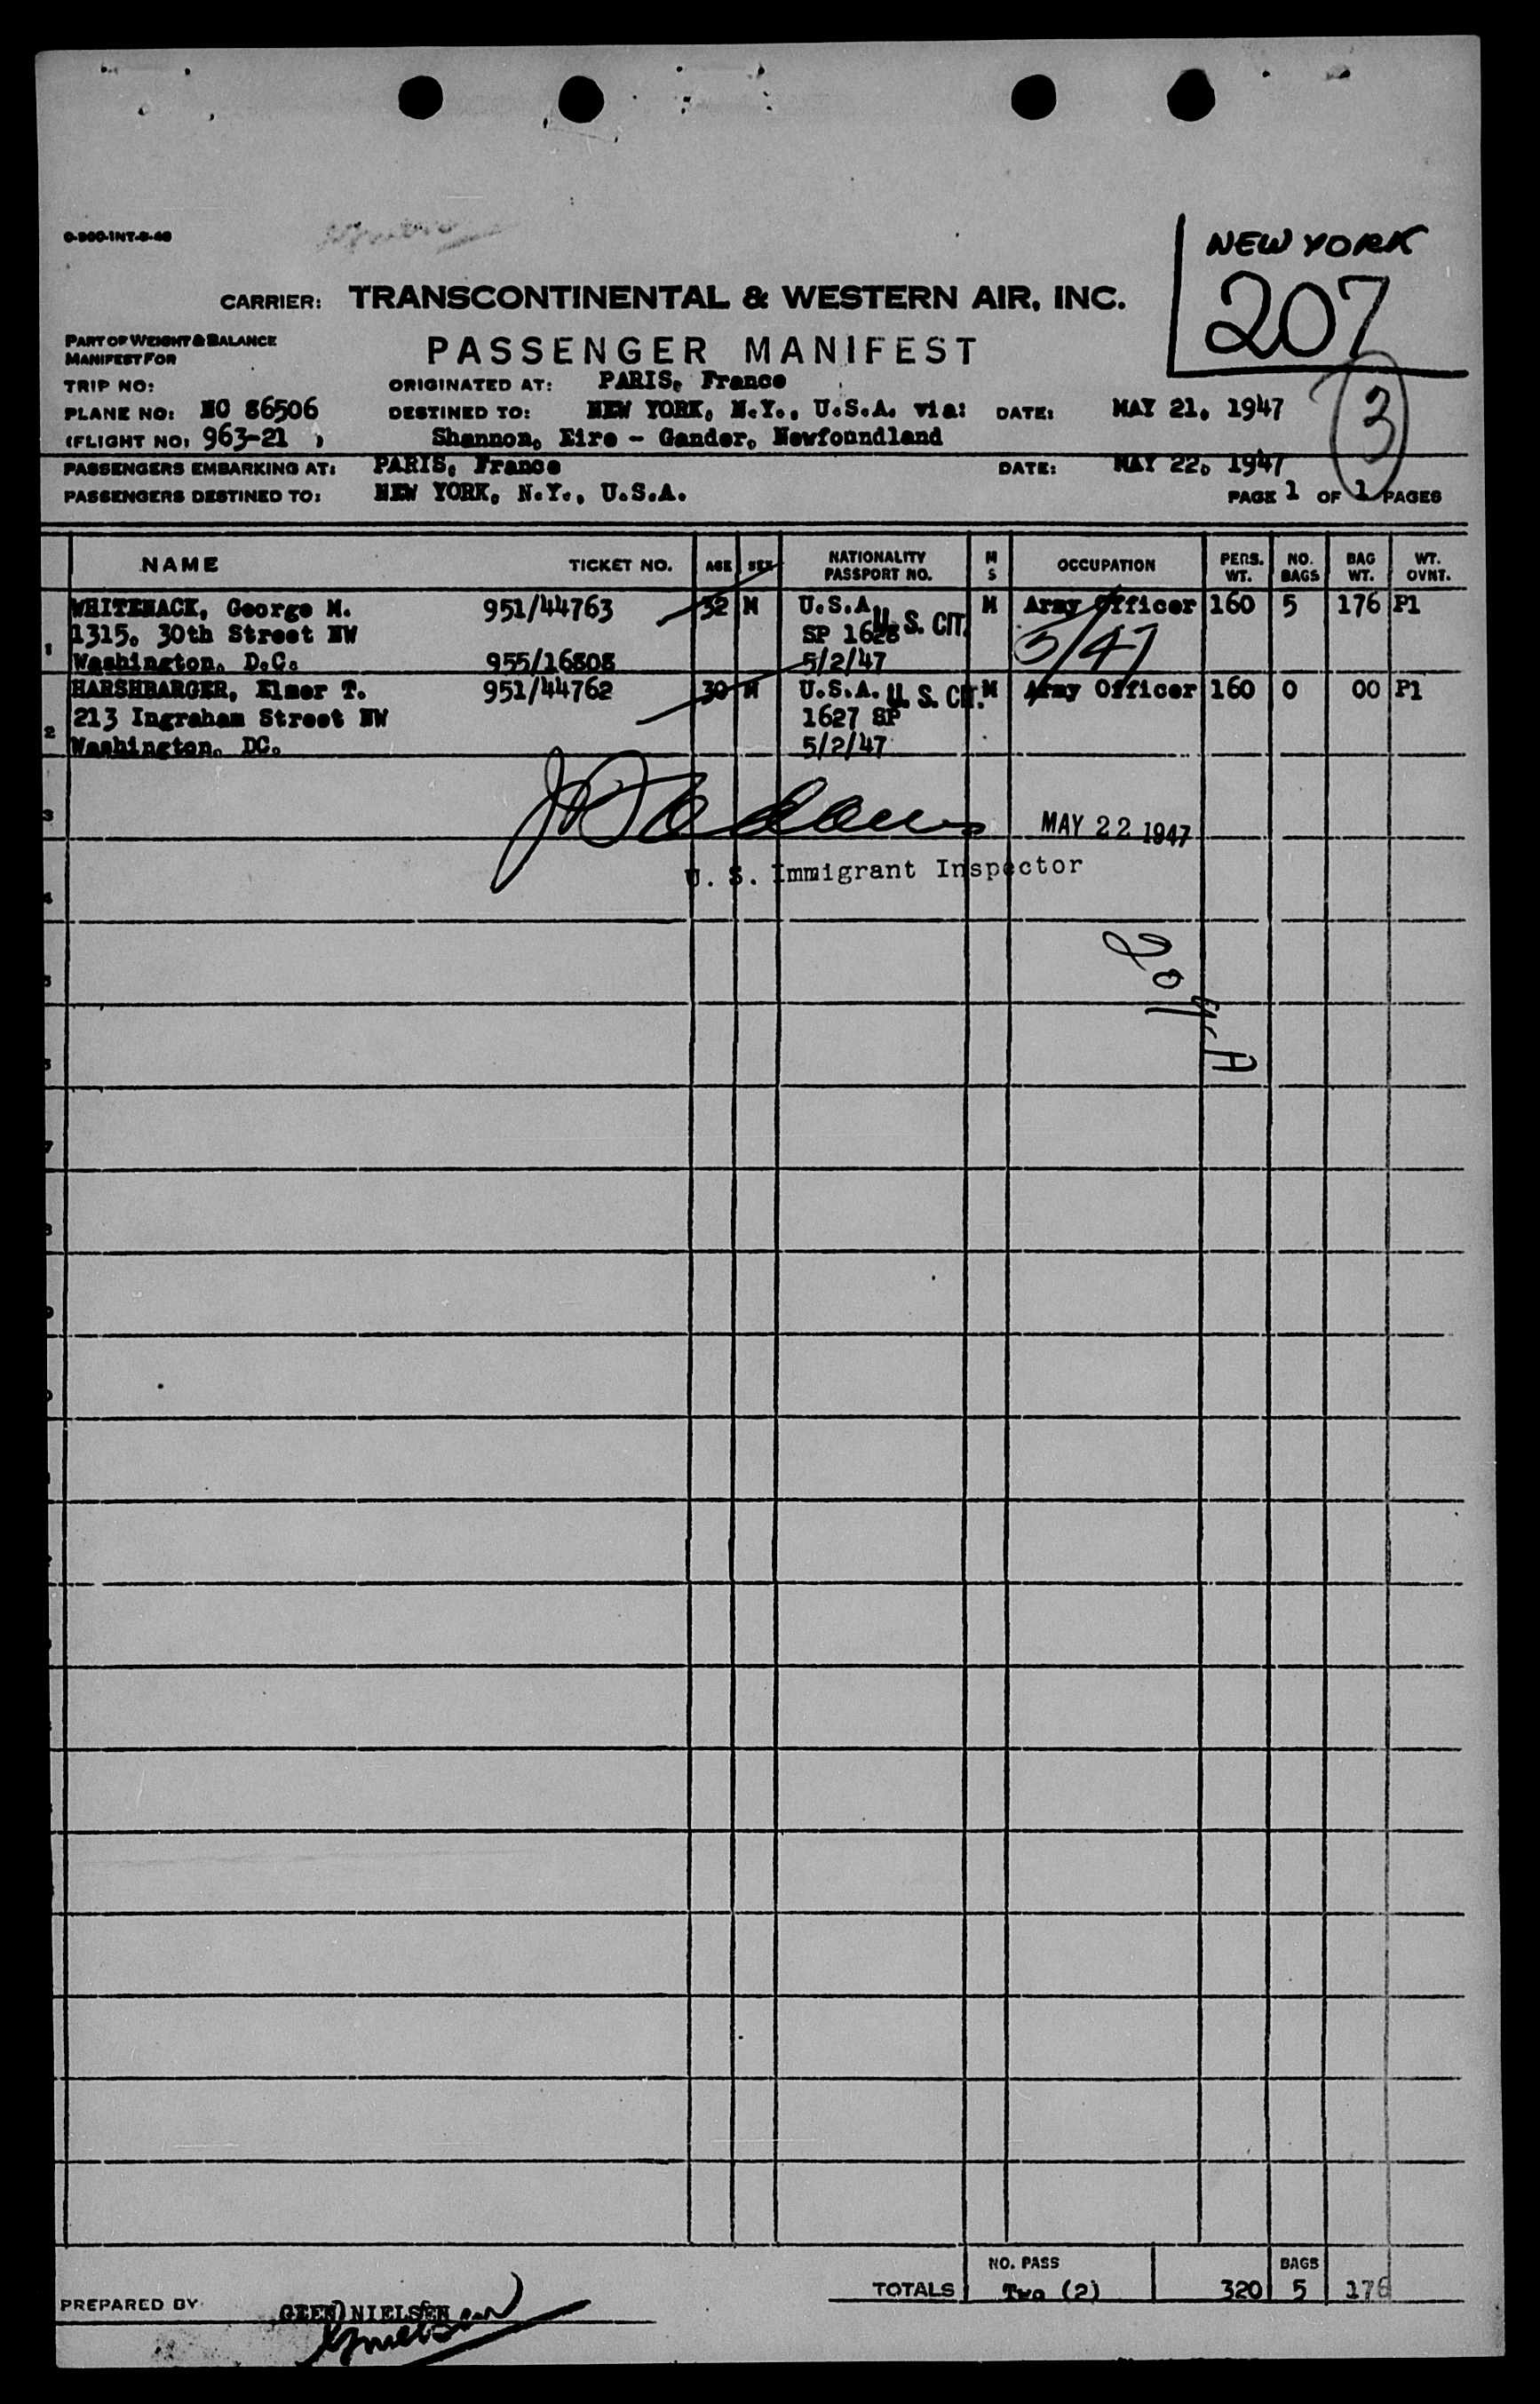 O-900-INT-6-46
NEW YORK
207
CARRIER: TRANSCONTINENTAL & WESTERN AIR, INC.
PART OF WEIGHT & BALANCE
MANIFEST FOR
PASSENGER MANIFEST
TRIP NO:
ORIGINATED AT: PARIS, France
PLANE NO: NC 86506
DESTINED TO: NEW YORK, N.Y., U.S.A. via: DATE: MAY 21, 1947
3
(FLIGHT NO: 963-21 )
Shannon, Eire - Gander, Newfoundland
PASSENGERS EMBARKING AT: PARIS, France DATE: MAY 22, 1947
PASSENGERS DESTINED TO: NEW YORK, N.Y., U.S.A. PAGE 1 OF 1 PAGES
NAME TICKET NO. AGE SEX NATIONALITY PASSPORT NO. M S OCCUPATION PERS. WT. NO. BAGS BAG WT. WT. OVNT.
1 WHITENACK, George M. 951/44763 32 M U.S.A. U.S. CIT. M Army Officer 160 5 176 P1
1315, 30th Street NW SP 1628 5/47
Washington, D.C. 955/16808 5/2/47
2 HARSHBARGER, Elmer T. 951/44762 30 M U.S.A. U.S. CIT. M Army Officer 160 0 00 P1
213 Ingraham Street NW 1627 SP
Washington, DC. 5/2/47
3
MAY 22 1947
U. S. Immigrant Inspector
4
5
7
NO. PASS BAGS
TOTALS Two (2) 320 5 176
PREPARED BY NIELSEN